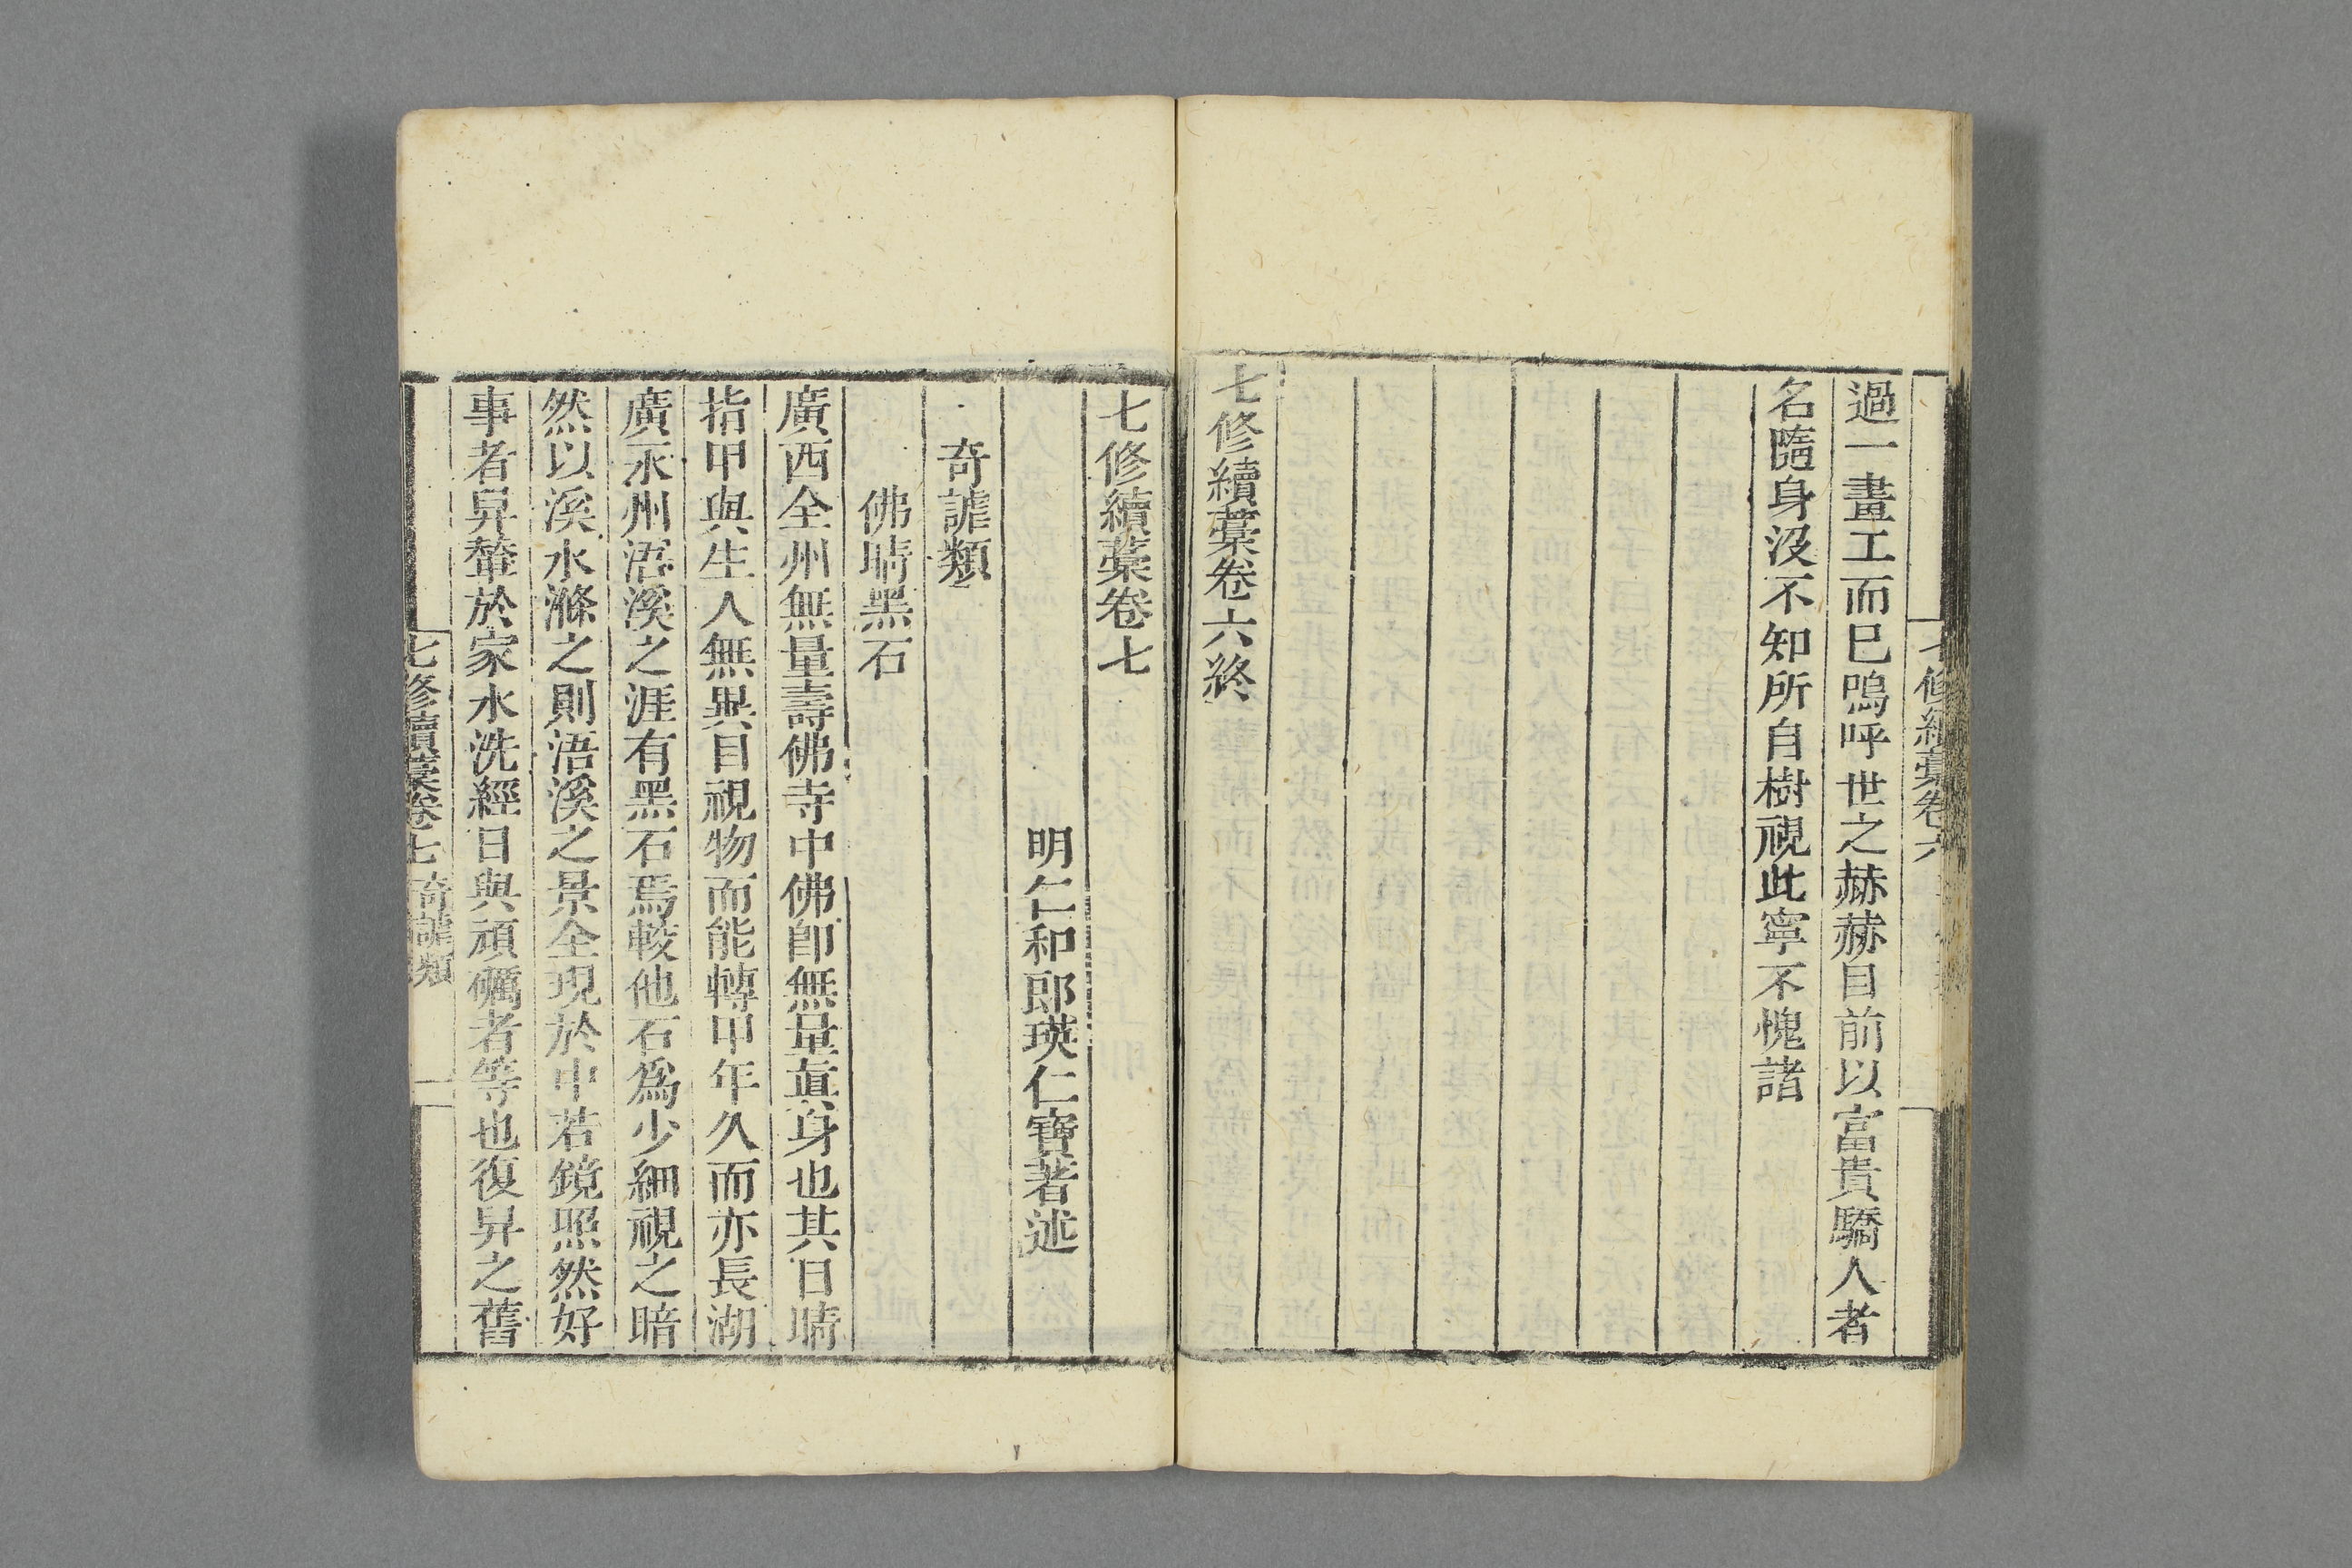 七修續藁卷六
過一畫工而巳嗚呼世之赫赫目前以富貴驕人者
名隨身沒不知所自樹視此寧不愧諸
七修續藁卷六終
七修續藁卷七
明仁和郎瑛仁寶著述
奇謔類
佛睛黑石
廣西全州無量壽佛寺中佛卽無量眞身也其目睛
指甲與生人無異目視物而能轉甲年久而亦長湖
廣永州浯溪之涯有黑石焉較他石爲少細視之暗
然以溪水滌之則浯溪之景全現於中若鏡照然好
事者舁輦於家水洗經日與頑礪者等也復舁之舊
七修續藁卷七 奇謔類 一